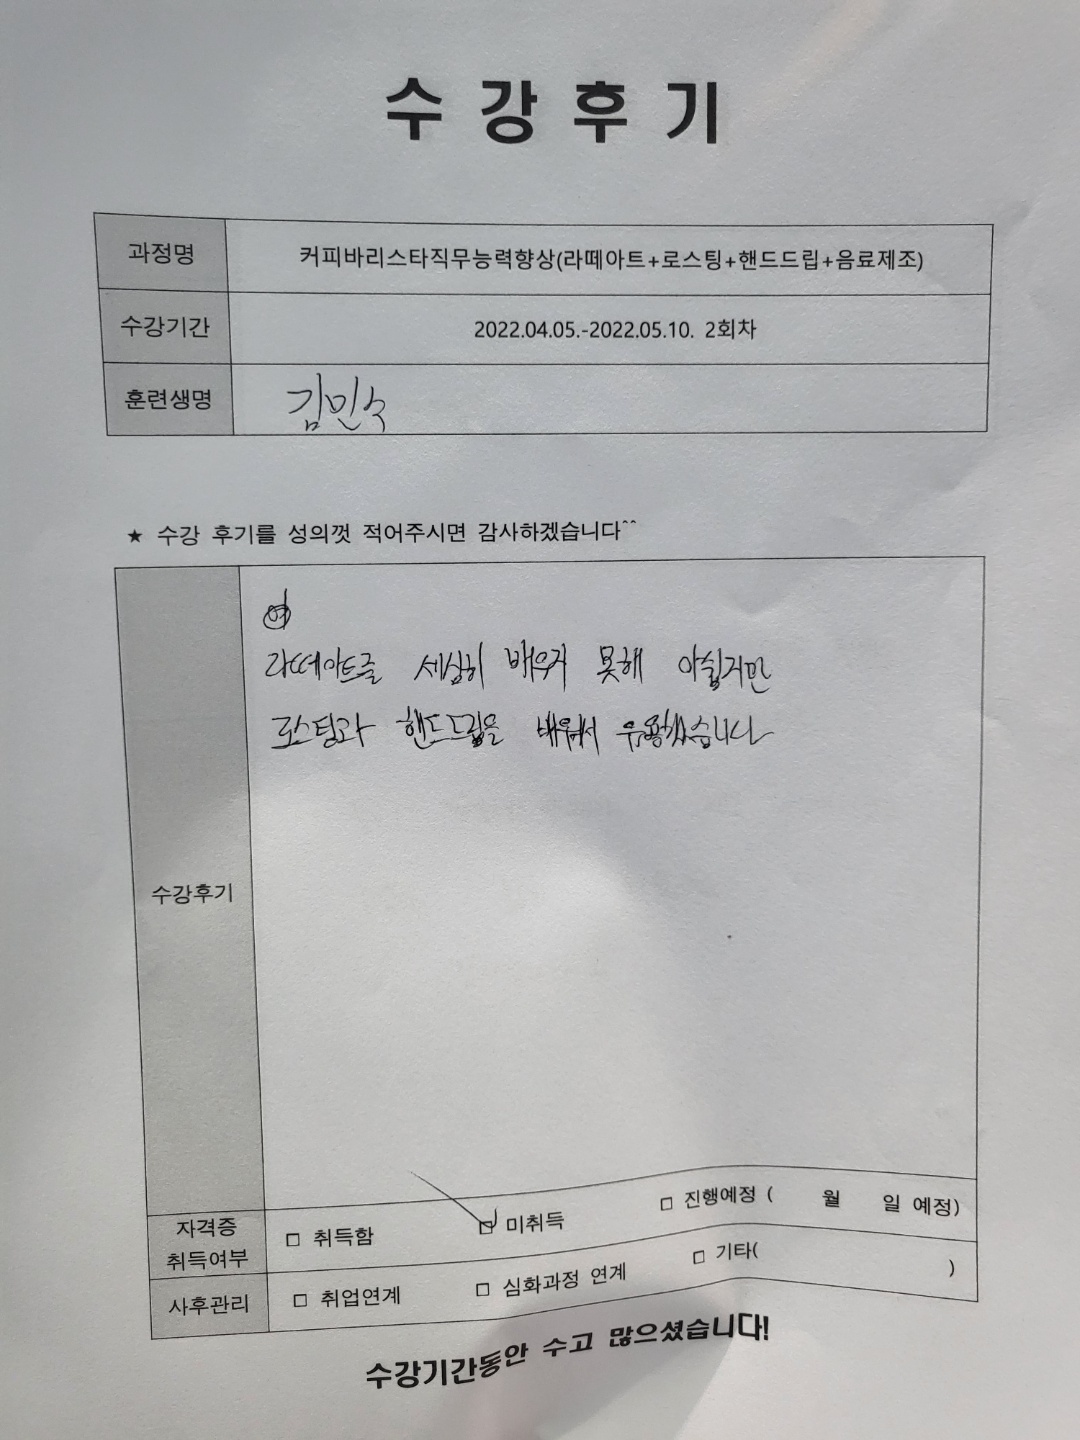 수강후기
과정명 커피바리스타직무능력향상(라떼아트+로스팅+핸드드립+음료제조)
수강기간 2022.04.05.-2022.05.10. 2회차
훈련생명 김민수
★ 수강 후기를 성의껏 적어주시면 감사하겠습니다^^
라떼아트를 세심히 배우지 못해 아쉽지만
로스팅과 핸드드립을 배워서 유용했습니다
수강후기
자격증 취득여부 □ 취득함 □ 미취득 □ 진행예정 ( 월 일 예정)
사후관리 □ 취업연계 □ 심화과정 연계 □ 기타( )
수강기간동안 수고 많으셨습니다!